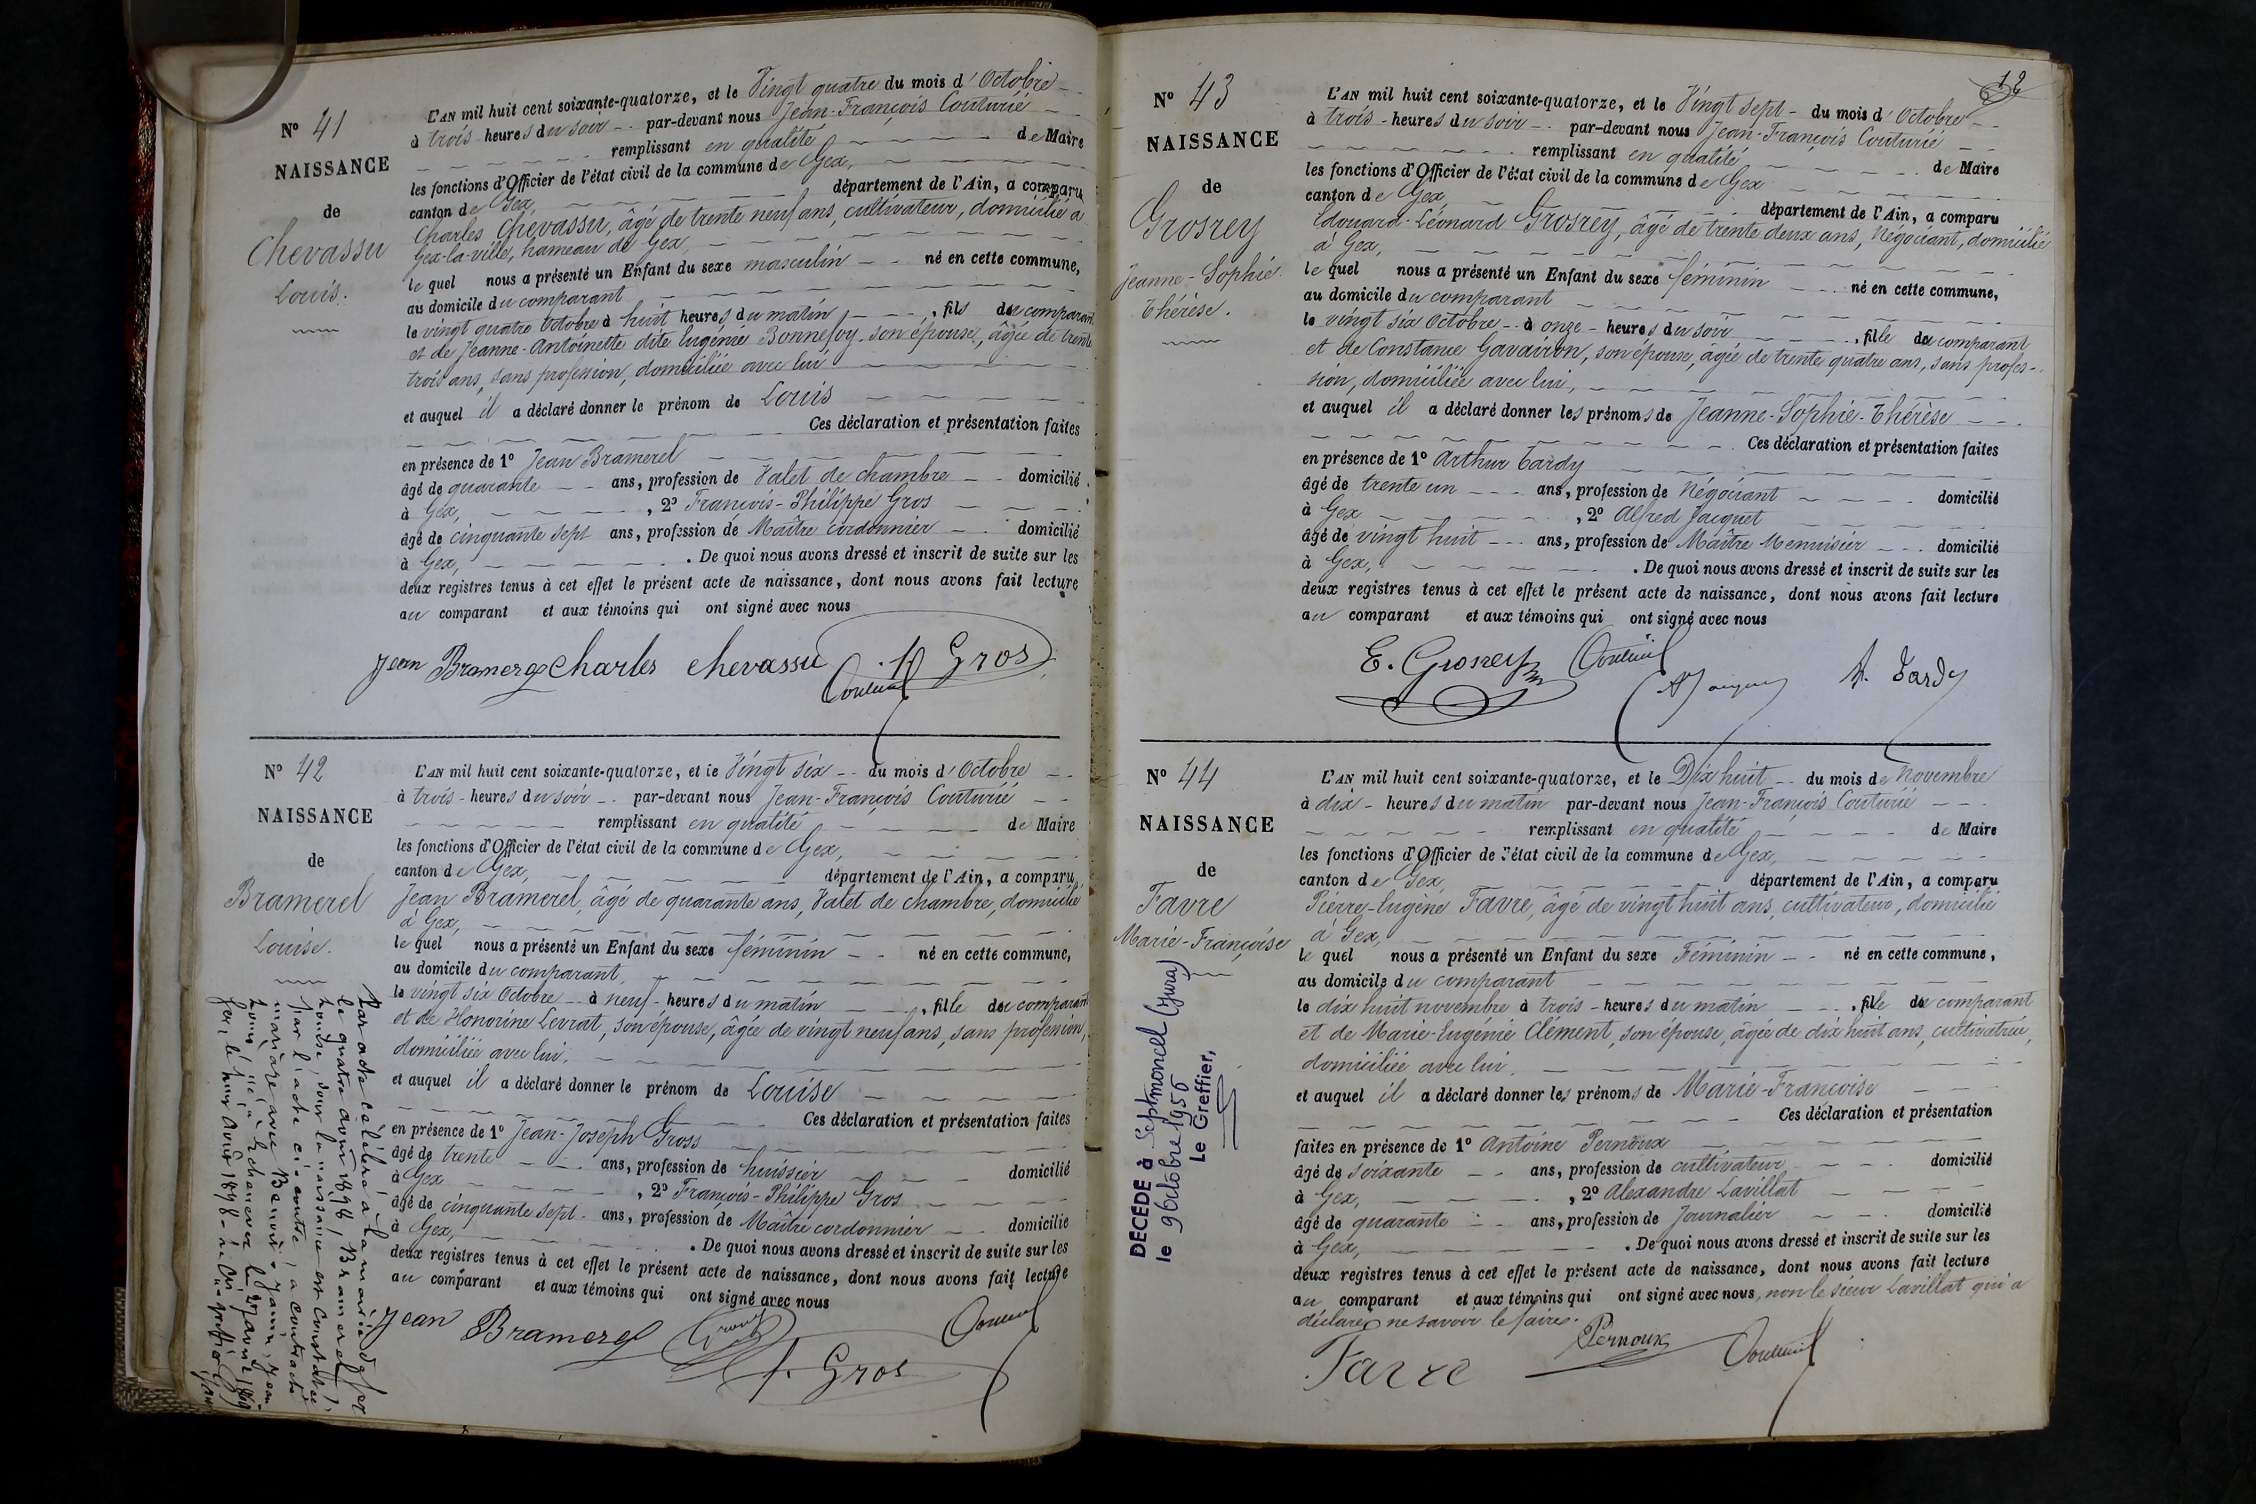 N° 41
NAISSANCE
de
Chevassu
Louis.
L'AN mil huit cent soixante-quatorze, et le Vingt quatre du mois d'Octobre
à trois heures du soir par-devant nous Jean-François Couturié
remplissant en qualité de Maire
les fonctions d'Officier de l'état civil de la commune de Gex,
canton de Gex, département de l'Ain, a comparu
Charles Chevassu, âgé de trente neuf ans, cultivateur, domicilié à
Gex-la-ville, hameau de Gex,
le quel nous a présenté un Enfant du sexe masculin né en cette commune,
au domicile du comparant
le vingt quatre Octobre à huit heures du matin, fils du comparant
et de Jeanne-Antoinette dite Eugénie Bonnefoy, son épouse, âgée de trente
trois ans, sans profession, domiciliée avec lui
et auquel il a déclaré donner le prénom de Louis
Ces déclaration et présentation faites
en présence de 1° Jean Bramerel
âgé de quarante ans, profession de Valet de chambre domicilié
à Gex, , 2° François-Philippe Gros
âgé de cinquante sept ans, profession de Maître cordonnier domicilié
à Gex, . De quoi nous avons dressé et inscrit de suite sur les
deux registres tenus à cet effet le présent acte de naissance, dont nous avons fait lecture
au comparant et aux témoins qui ont signé avec nous
Jean Bramerel Charles chevassu f Gros
Couturié
N° 42
NAISSANCE
de
Bramerel
Louise.
Par acte célébré à la mairie de Gex
le quatre août 1898, Bramerel
Louise, dont la naissance est constatée
par l'acte ci-contre, a contracté
mariage avec Janin, Jean
Gex, le huit août 1898
L'AN mil huit cent soixante-quatorze, et le Vingt six du mois d'Octobre
à trois heures du soir par-devant nous Jean-François Couturié
remplissant en qualité de Maire
les fonctions d'Officier de l'état civil de la commune de Gex,
canton de Gex, département de l'Ain, a comparu
Jean Bramerel, âgé de quarante ans, Valet de chambre, domicilié
à Gex,
le quel nous a présenté un Enfant du sexe féminin né en cette commune,
au domicile du comparant,
le vingt six Octobre à neuf heures du matin, fille du comparant
et de Honorine Levrat, son épouse, âgée de vingt neuf ans, sans profession,
domiciliée avec lui.
et auquel il a déclaré donner le prénom de Louise
Ces déclaration et présentation faites
en présence de 1° Jean-Joseph Gross
âgé de trente ans, profession de huissier domicilié
à Gex , 2° François-Philippe Gros
âgé de cinquante sept ans, profession de Maître cordonnier domicilié
à Gex, . De quoi nous avons dressé et inscrit de suite sur les
deux registres tenus à cet effet le présent acte de naissance, dont nous avons fait lecture
au comparant et aux témoins qui ont signé avec nous
Jean Bramerel Gross Couturié
f. Gros
12
N° 43
NAISSANCE
de
Grosrey
Jeanne-Sophie
Thérèse.
L'AN mil huit cent soixante-quatorze, et le Vingt sept du mois d'Octobre
à trois heures du soir par-devant nous Jean-François Couturié
remplissant en qualité de Maire
les fonctions d'Officier de l'état civil de la commune de Gex
canton de Gex, département de l'Ain, a comparu
Edouard-Léonard Grosrey, âgé de trente deux ans, Négociant, domicilié
à Gex,
le quel nous a présenté un Enfant du sexe féminin né en cette commune,
au domicile du comparant
le vingt six Octobre à onze heures du soir, fille du comparant
et de Constance Gavairon, son épouse, âgée de trente quatre ans, sans profes-
sion, domiciliée avec lui,
et auquel il a déclaré donner les prénoms de Jeanne-Sophie-Thérèse
Ces déclaration et présentation faites
en présence de 1° Arthur Tardy
âgé de trente un ans, profession de Négociant domicilié
à Gex , 2° Alfred Jacquet
âgé de vingt huit ans, profession de Maître Menuisier domicilié
à Gex, . De quoi nous avons dressé et inscrit de suite sur les
deux registres tenus à cet effet le présent acte de naissance, dont nous avons fait lecture
au comparant et aux témoins qui ont signé avec nous
E. Grosrey Couturié
A Jacquet A. Tardy
N° 44
NAISSANCE
de
Favre
Marie-Françoise
DÉCÉDÉ à Septmoncel (Jura)
le 9 Octobre 1956
Le Greffier,
L'AN mil huit cent soixante-quatorze, et le Dix huit du mois de Novembre
à dix heures du matin par-devant nous Jean-François Couturié
remplissant en qualité de Maire
les fonctions d'Officier de l'état civil de la commune de Gex,
canton de Gex, département de l'Ain, a comparu
Pierre-Eugène Favre, âgé de vingt huit ans, cultivateur, domicilié
à Gex,
le quel nous a présenté un Enfant du sexe Féminin né en cette commune,
au domicile du comparant
le dix huit novembre à trois heures du matin, fille du comparant
et de Marie-Eugénie Clément, son épouse, âgée de dix huit ans, cultivatrice,
domiciliée avec lui.
et auquel il a déclaré donner les prénoms de Marie-Françoise
Ces déclaration et présentation
faites en présence de 1° Antoine Pernoux
âgé de soixante ans, profession de cultivateur domicilié
à Gex, , 2° Alexandre Lavillat
âgé de quarante ans, profession de Journalier domicilié
à Gex, . De quoi nous avons dressé et inscrit de suite sur les
deux registres tenus à cet effet le présent acte de naissance, dont nous avons fait lecture
au comparant et aux témoins qui ont signé avec nous, non le sieur Lavillat qui a
déclaré ne savoir le faire.
Favre Pernoux Couturié